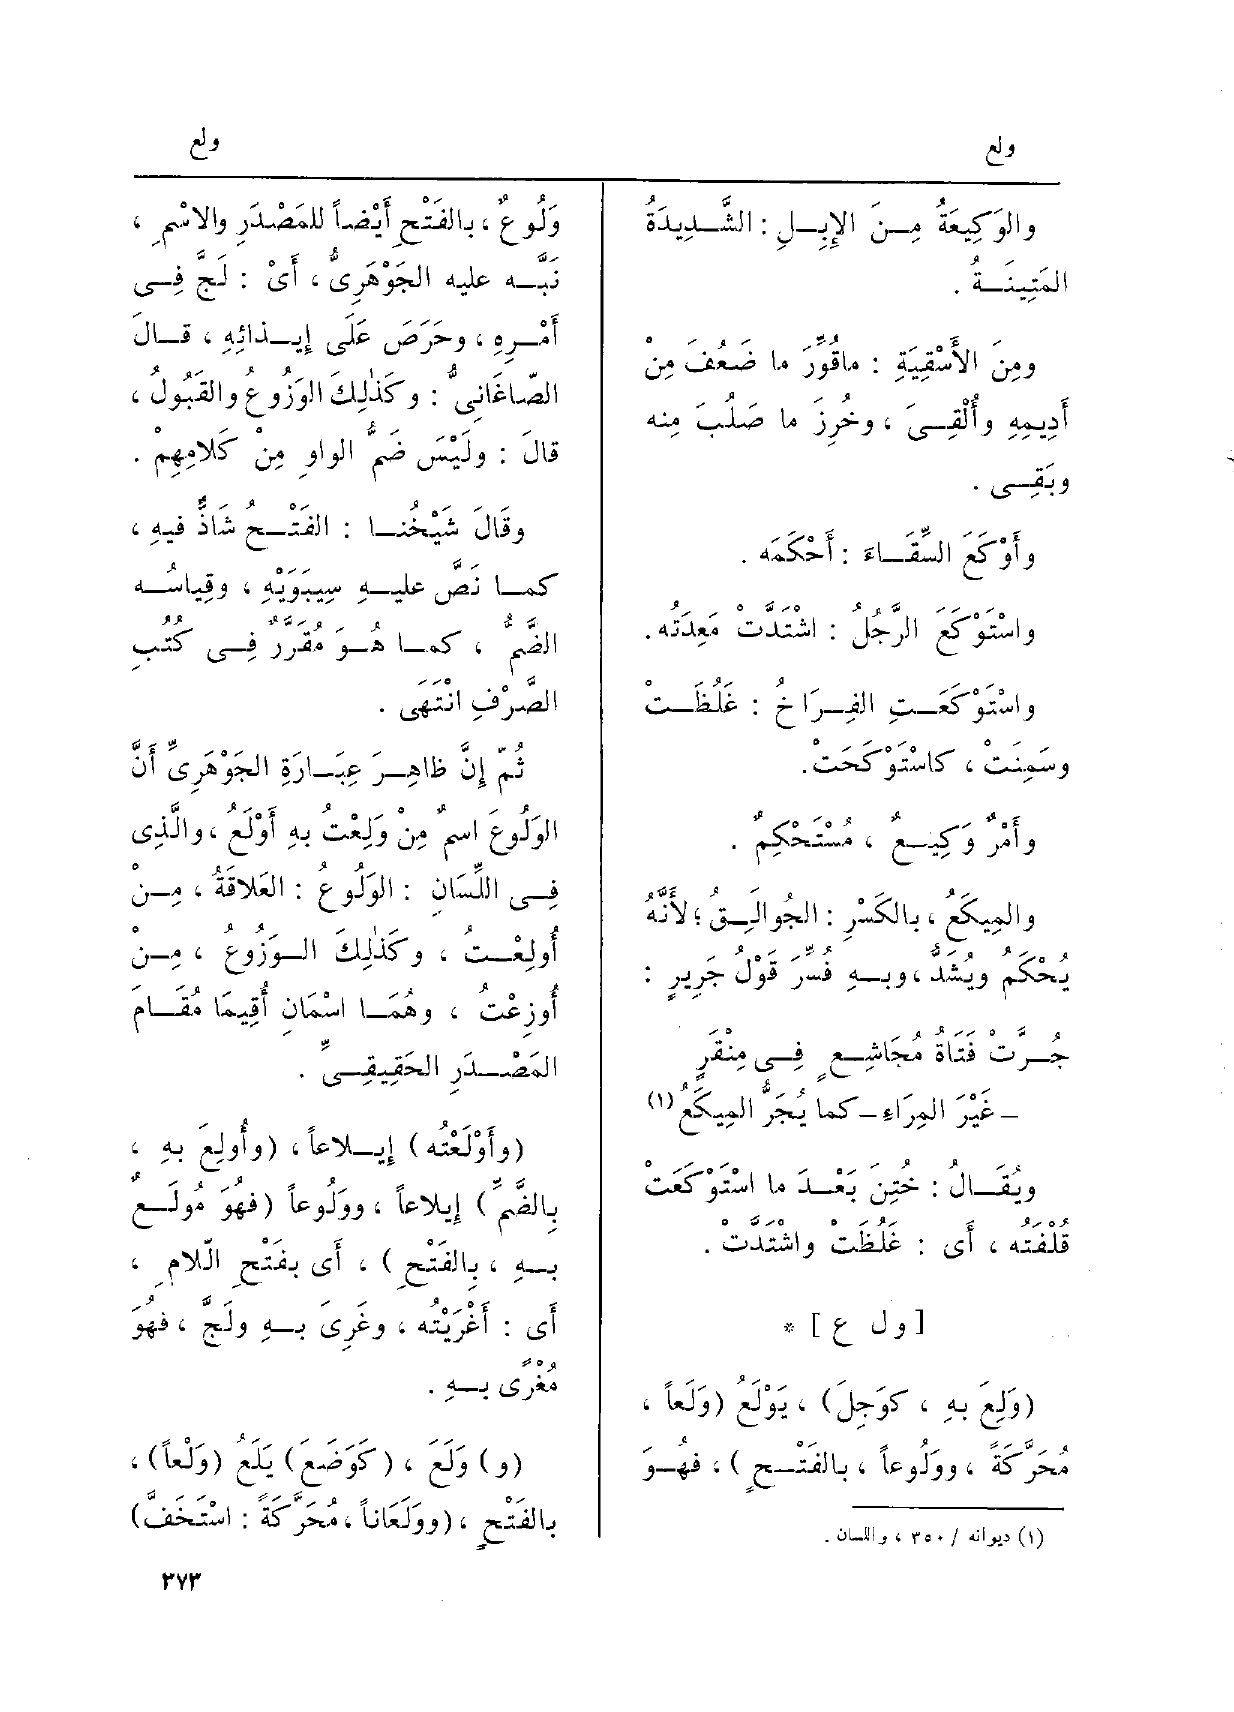 ولع
ولع
والوَكِيعَةُ مِـنَ الإِبِـلِ : الشَّـدِيدَةُ
المَتِينَـةُ .
ومِنَ الأَسْقِيَةِ : ماقُوِّرَ ما ضَعُفَ مِنْ
أَدِيمِهِ وأُلْقِـىَ ، وخُرِزَ ما صَلُبَ مِنه
وبَقِـى .
وأَوْكَعَ السِّقَـاءَ : أَحْكَمَه .
واسْتَوْكَعَ الرَّجُلُ : اشْتَدَّتْ مَعِدَتُه .
واسْتَوْكَعَـتِ الفِـرَاخُ : غَلُظَـتْ
وسَمِنَتْ ، كاسْتَوْكَحَتْ.
وأَمْرٌ وَكِيـعٌ ، مُسْتَحْكِمٌ .
والمِيكَعُ ، بالكَسْرِ : الجُوالِـقُ ؛ لأَنَّهُ
يُحْكَم ويُشَدُّ ، وبـهِ فُسِّرَ قَوْلُ جَرِيرٍ :
جُـرَّتْ فَتَاةُ مُجَاشِـعٍ فِـى مِنْقَرٍ
– غَيْرَ المِرَاءِ – كما يُجَرُّ المِيكَعُ (١)
ويُقَـالُ : خُتِنَ بَعْـدَ ما اسْتَوْكَعَتْ
قُلْفَتُه ، أى : غَلُظَتْ واشْتَدَّتْ .
[ و ل ع ] *
(وَلِعَ بهِ ، كوَجِلَ) ، يَوْلَعُ (وَلَعاً ،
مُحَرَّكَةً ، ووَلُوعاً ، بالفَتْـحِ ) ، فهُـوَ
(١) ديوانه / ٣٥٠ ، واللسان .
وَلُوعٌ ، بالفَتْحِ أَيْضاً للمَصْدَرِ والاسْمِ ،
نَبَّـه عليه الجَوْهَرِىُّ ، أَىْ : لَجَّ فِـى
أَمْـرِهِ ، وحَرَصَ عَلَى إِيـذائِهِ ، قـالَ
الصّاغَانِىُّ : وكَذٰلِكَ الوَزُوعُ والقَبُولُ ،
قالَ : ولَيْسَ ضَمُّ الواوِ مِنْ كَلامِهِمْ .
وقَالَ شَيْخُنـا : الفَتْـحُ شاذٌّ فيهِ ،
كمـا نَصَّ عليـهِ سِيبَوَيْهِ ، وقِياسُـه
الضَّمُّ ، كمـا هُـوَ مُقَرَّرٌ فِـى كُتُبِ
الصَّرْفِ انْتَهَى .
ثُمّ إِنَّ ظاهِـرَ عِبَـارَةِ الجَوْهَرِىِّ أَنَّ
الوَلُوعَ اسمٌ مِنْ وَلِعْتُ بهِ أَوْلَعُ ، والَّذِى
فِـى اللِّسَانِ : الوَلُوعُ : العَلاقَةُ ، مِـنْ
أُولِعْـتُ ، وكَذٰلِكَ الـوَزُوعُ ، مِـنْ
أُوزِعْتُ ، وهُمَـا اسْمَانِ أُقِيمَا مُقَـامَ
المَصْـدَرِ الحَقِيقِـىِّ .
(وأَوْلَعْتُه) إِيـلاعاً ، (وأُولِعَ بهِ ،
بِالضَّمِّ ) إِيلاعاً ، ووَلُوعاً (فهُوَ مُولَـعٌ
بـهِ ، بِالفَتْحِ ) ، أى بفَتْحِ الّلامِ ،
أى : أَغْرَيْتُه ، وغَرِىَ بـهِ ولَجَّ ، فهُوَ
مُغْرًى بـهِ .
(و) وَلَعَ ، (كوَضَعَ) يَلَعُ (وَلْعاً) ،
بالفَتْحِ ، (ووَلَعَاناً ، مُحَرَّكَةً : اسْتَخَفَّ)
٣٧٣